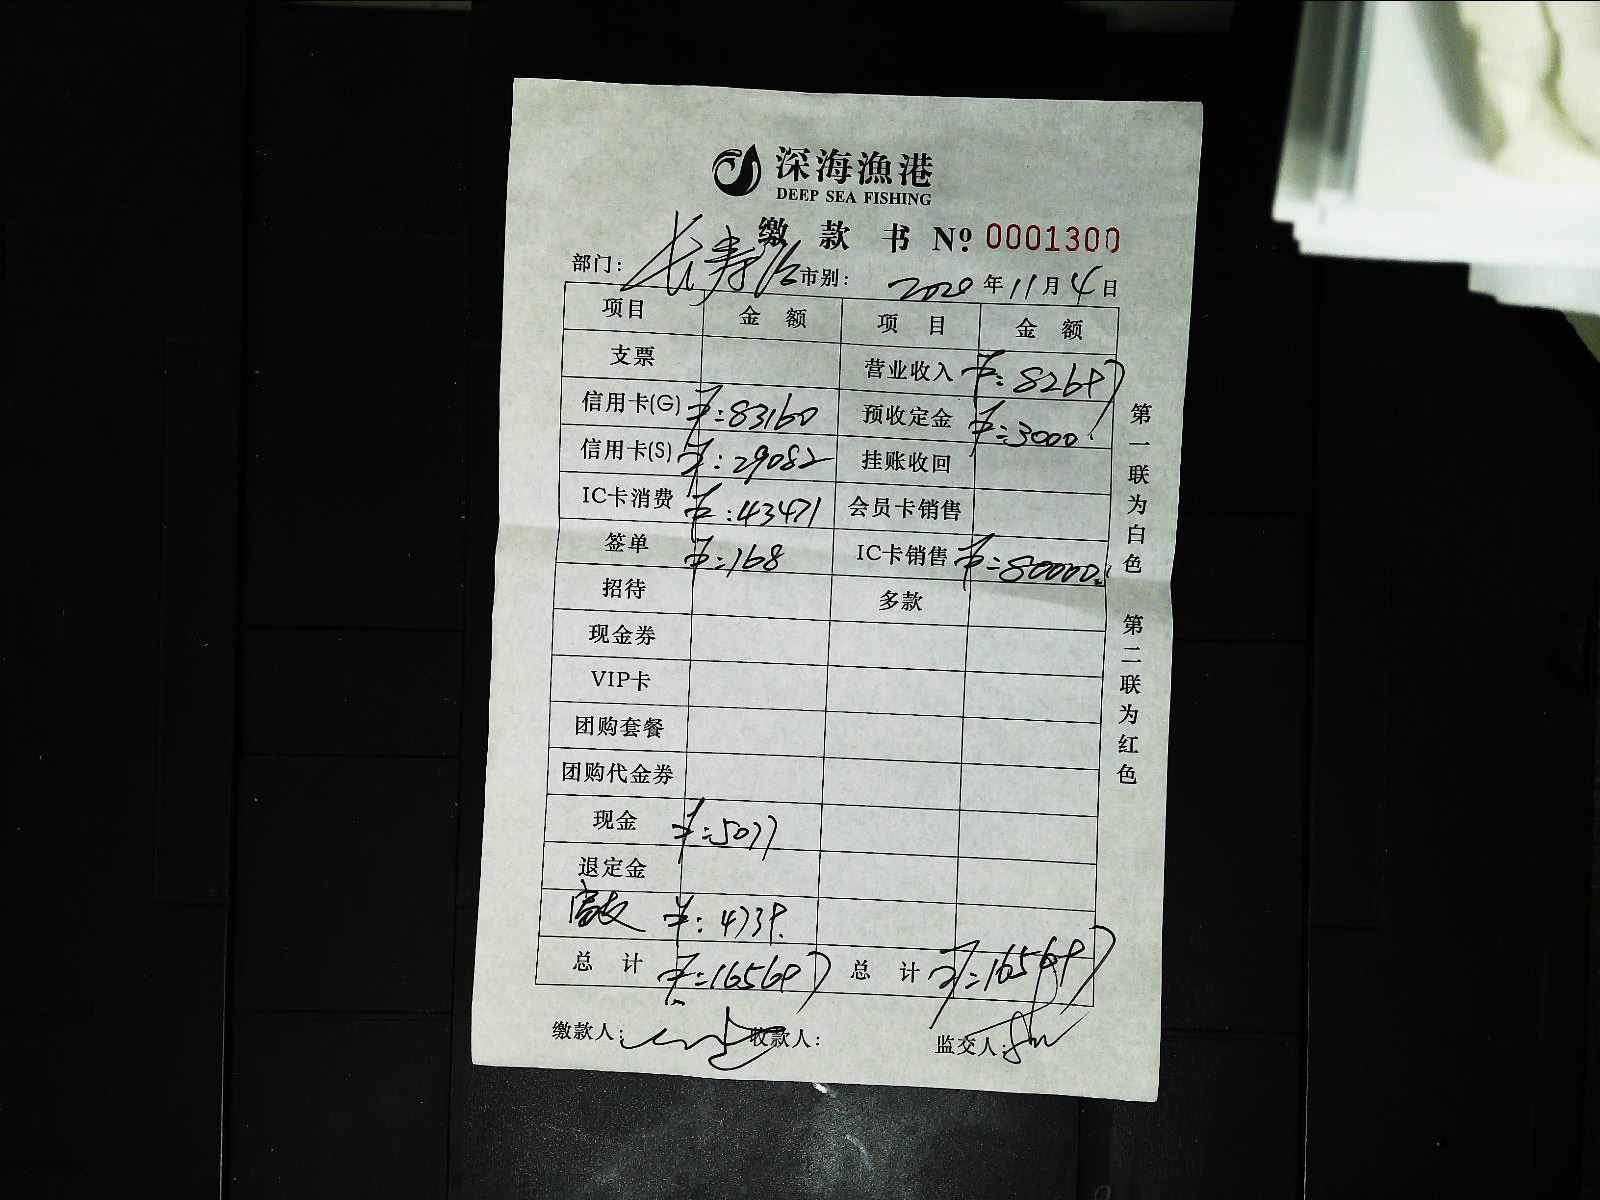 深海漁港
DEEP SEA FISHING
缴 款 书 Nº 0001300
部门: 长寿路 市别: 2020 年 11 月 4 日
项目 金 额 项 目 金 额
支票 营业收入 ¥:82697
信用卡(G) ¥:83160 预收定金 ¥:3000.
信用卡(S) ¥:29082 挂账收回
IC卡消费 ¥:43471 会员卡销售
签单 ¥:168 IC卡销售 ¥:80000.
招待 多款
现金券
VIP卡
团购套餐
团购代金券
现金 ¥:5077
退定金
富友 ¥:4739.
总 计 ¥:165697 总 计 ¥:165697
缴款人: 收款人: 监交人:
第一联为白色 第二联为红色